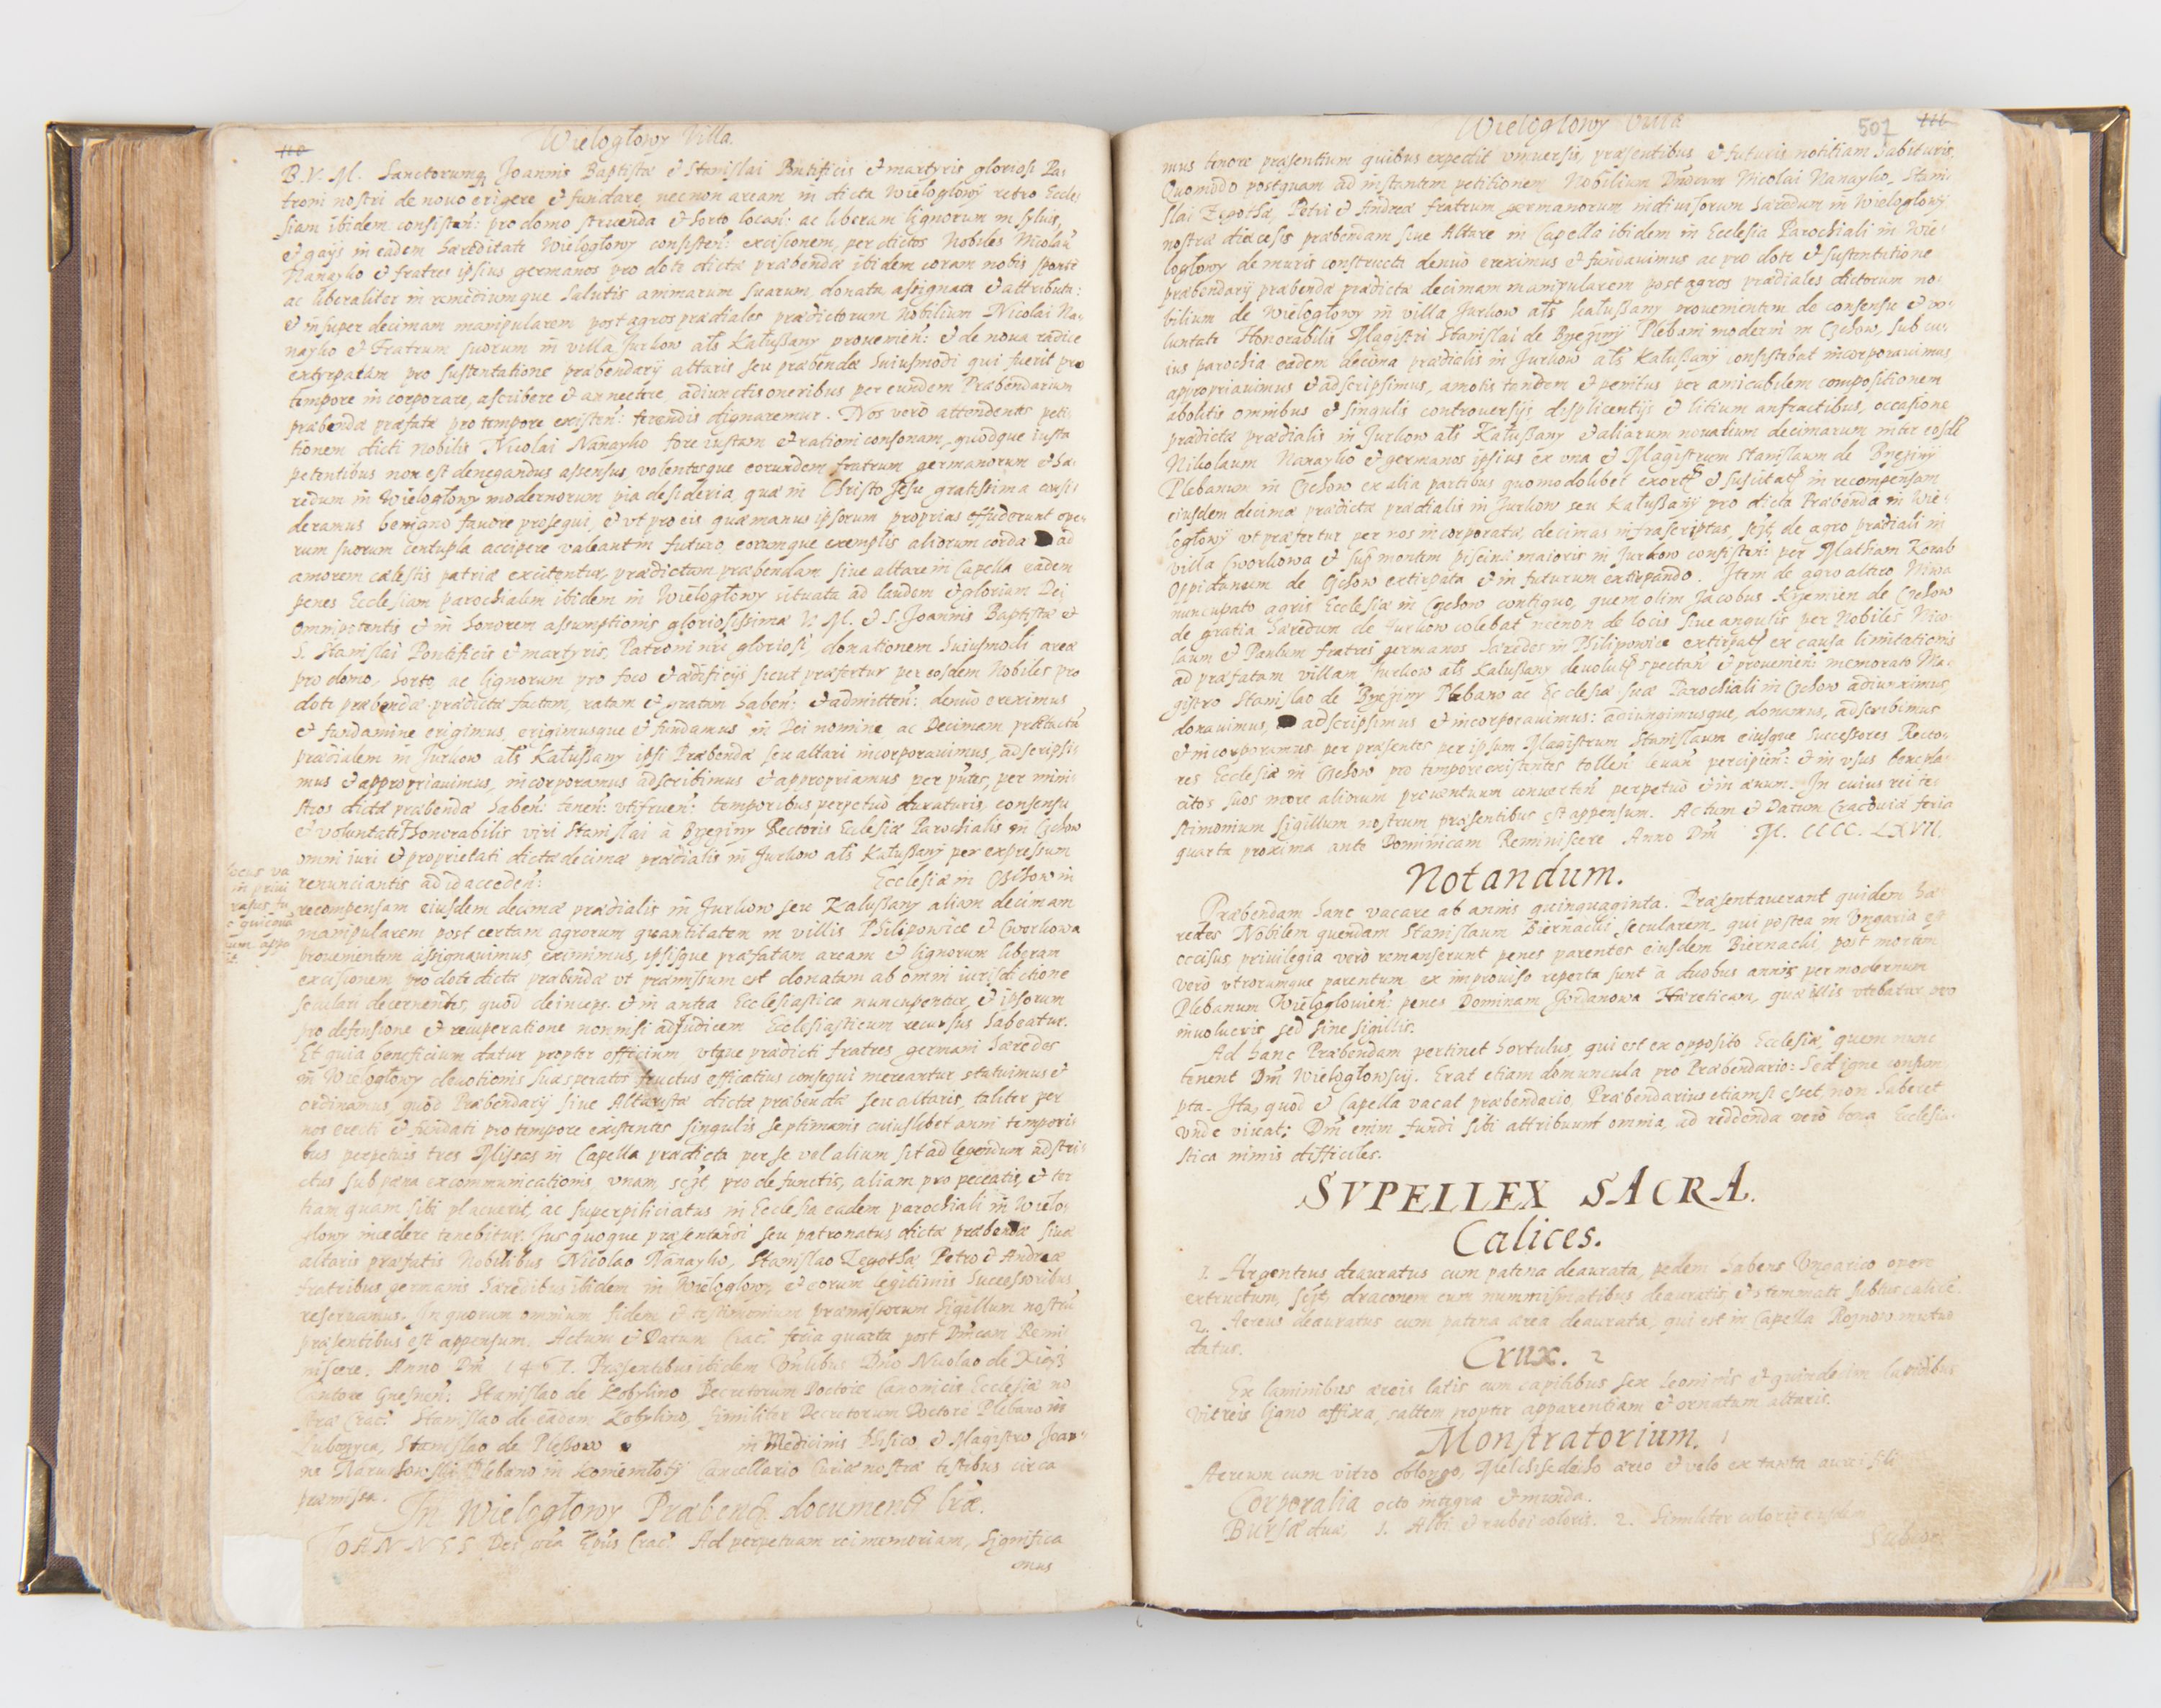 110
Wielogłowy Villa.
B.V.M. Sanctorumq Joannis Baptistæ et Stanislai Pontificis et martyris gloriosi Pa-
troni nostri de nouo erigere et fundare, nec non aream in dicta Wielogłowy retro Eccle-
siam ibidem consisten: pro domo struenda et horto locan: ac liberam lignorum in syluis,
et gays in eadem hæreditate Wielogłowy consisten: excisionem, per dictos Nobiles Nicolau
Nanayko et fratres ipsius germanos pro dote dictæ præbendæ ibidem coram nobis sponte
ac liberaliter in remediumque salutis animarum suarum donata, assignata et attributa:
et insuper decimam manipularem post agros prædiales prædictorum Nobilium Nicolai Na-
nayko et Fratrum suorum in villa Jurkow als Kałussany prouenien: et de noua radice
extyrpatam pro sustentatione præbendarij altaris seu præbendæ huiusmodi qui fuerit pro
tempore incorporare, ascribere et annectere, adiunctis oneribus per eundem Præbendarium
præbendæ præfatæ pro tempore existen: ferendis dignaremur. Nos vero attendentes peti-
tionem dicti nobilis Nicolai Nanayko fore iustam et rationi consonam, quodque iusta
petentibus non est denegandus assensus, volentesque eorundem fratrum germanorum et hæ-
redum in Wielogłowy modernorum pia desideria, quæ in Christo Jesu gratissima consi-
deramus benigno fauore prosequi, et vt pro eis quæ manus ipsorum proprias effuderunt ope-
rum suorum centupla accipere valeant in futuro, eorumque exemplis aliorum corda ad
amorem cælestis patriæ excitentur, prædictam præbendam siue altare in Capella eadem
penes Ecclesiam parochialem ibidem in Wielogłowy situata ad laudem et gloriam Dei
Omnipotentis et in honorem assumptionis gloriosissimæ V. M. et S. Joannis Baptistæ et
S. Stanislai Pontificis et martyris, Patroni nri gloriosi, donationem huiusmodi areæ
pro domo, horto, ac lignorum pro foco et ædificijs sicut præfertur per eosdem Nobiles pro
dote præbendæ prædictæ factam, ratam et gratam haben: et admitten: denuo ereximus
et fundamine erigimus, erigimusque et fundamus in Dei nomine, ac Decimam prætactā
prædialem in Jurkow als Kałussany ipsi Præbendæ seu altari incorporauimus, adscripsi-
mus et appropriauimus, incorporamus adscribimus et appropriamus per pntes, per mini-
stros dictæ præbendæ haben: tenen: vtifruen: temporibus perpetuo duraturis, consensu
et voluntate Honorabilis viri Stanislai à Brzeginy Rectoris Ecclesiæ Parochialis in Czchow
omni iuri et proprietati dictæ decimæ prædialis in Jurkow als Kałussany per expressum
renunciantis ad id acceden: Ecclesiæ in Czchow in
recompensam eiusdem decimæ prædialis in Jurkow seu Kałussany aliam decimam
manipularem post certam agrorum quantitatem in villis Philipowice et Cworkowa
prouenientem assignauimus, eximimus, ipsisque præfatam aream et lignorum liberam
excisionem pro dote dictæ præbendæ vt præmissum est donatam ab omni iurisdictione
seculari decernentes, quod deinceps et in antea Ecclesiastica nuncupentur, et ipsorum
pro defensione et recuperatione nonnisi ad Judicem Ecclesiasticum recursus habeatur.
Et quia beneficium datur propter officium vtque prædicti fratres germani hæredes
in Wielogłowy deuotionis suæ speratos fructus efficatius consequi mereantur, statuimus et
ordinamus, quod Præbendarij siue Altaristæ dictæ præbendæ seu altaris, taliter per
nos erecti et fundati pro tempore existentes singulis septimanis cuiuslibet anni tempori-
bus perpetuis tres Missas in Capella prædicta per se vel alium sit ad legendum adstri-
ctus sub pæna excommunicationis, vnam, scżt, pro defunctis, aliam pro peccatis, et ter-
tiam quam sibi placuerit, ac superpiliciatus in Ecclesia eadem parochiali in Wielo-
głowy incedere tenebitur. Jus quoque præsentandi seu patronatus dictæ præbendæ siue
altaris præfatis Nobilibus Nicolao Nanayko, Stanislao Zegotha, Petro et Andreæ
fratribus germanis hæredibus ibidem in Wielogłowy, et eorum legitimis successoribus
reseruamus. In quorum omnium fidem et testimonium præmissorum Sigillum nostrū
præsentibus est appensum. Actum et Datum Crac: feria quarta post Dnicam Remi-
niscere. Anno Dni 1467. Præsentibus ibidem Vnlibus Dno Nicolao de
Cantore Gnesnen: Stanislao de Kobylino Decretorum Doctore Canonicis Ecclesiæ no-
stræ Crac: Stanislao de eadem Kobylino, similiter Decretorum Doctore Plebano in
Stanislao de Plessow in Medicinis Phisico, et Magistro Joan-
ne Plebano in Cancellario Curiæ nostræ testibus circa
præmissa.
In Wielogłowy Præbend. document. lræ.
IOANNES Dei gra Epūs Crac: Ad perpetuam rei memoriam, Significa-
mus
Wielogłowy Villa
507 111
mus tenore præsentium quibus expedit vniuersis, præsentibus et futuris notitiam habituris,
Quomodo postquam ad instantem petitionem Nobilium Dnorum Nicolai Nanayko, Stani-
slai Zegotha, Petri et Andreæ fratrum germanorum indiuisorum hæredum in Wielogłowy
nostræ diæcesis præbendam siue Altare in Capella ibidem in Ecclesia Parochiali in Wie-
logłowy de muris constructa denuo ereximus et fundauimus ac pro dote et sustentatione
præbendarij præbendæ prædictæ decimam manipularem post agros prædiales dictorum no-
bilium de Wielogłowy in villa Jurkow als Kałussany prouenientem de consensu et vo-
luntate Honorabilis Magistri Stanislai de Brzeginy Plebani moderni in Czchow, sub cu-
ius parochia eadem decima prædialis in Jurkow als Kałussany consistebat incorporauimus
appropriauimus et adscripsimus, amotis tandem et penitus per amicabilem compositionem
abolitis omnibus et singulis controuersijs, displicentijs et litium anfractibus, occasione
prædictæ prædialis in Jurkow als Kałussany et aliarum noualium decimarum inter eosdē
Nikolaum Nanayko et germanos ipsius ex vna et Magistrum Stanislaum de Brzeginy
Plebanum in Czchow ex alia partibus quomodolibet exort. et suscitat. in recompensam
eiusdem decimæ prædictæ prædialis in Jurkow seu Kałussany pro dicta Præbenda in Wie-
logłowy vt præfertur per nos incorporatæ, decimas infrascriptas, scżt, de agro prædiali in
villa Cworkowa et sup montem piscinæ maioris in Jurkow consisten: per Matham Korab
Oppidanum de Czchow extirpata et in futurum extirpando. Item de agro altero Niwa
nuncupato agris Ecclesiæ in Czchow contiguo, quem olim Jacobus Krzemien de Czchow
de gratia hæredum de Jurkow colebat necnon de locis siue angulis per Nobiles Nico-
laum et Paulum fratres germanos hæredes in Philipowice extirpat. ex causa limitationis
ad præfatam villam Jurkow als Kałussany deuolut. spectan: et prouenien: memorato Ma-
gistro Stanislao de Brzeginy Plebano ac Ecclesiæ suæ Parochiali in Czchow adiunximus,
donauimus, adscripsimus et incorporauimus: adiungimusque, donamus, adscribimus
et incorporamus per præsentes per ipsum Magistrum Stanislaum eiusque Successores Recto-
res Ecclesiæ in Czchow pro tempore existentes tollen: leuan: percipien: et in vsus beneplа-
citos suos more aliorum prouentuum conuerten: perpetuo et in æuum. In cuius rei te-
stimonium sigillum nostrum præsentibus est appensum. Actum et Datum Cracouiæ feria
quarta proxima ante Dominicam Reminiscere Anno Dni M. CCCC. LXVII.
Notandum.
Præbendam hanc vacare ab annis quinquaginta. Præsentauerant quidem hæ-
redes Nobilem quendam Stanislaum Biernacki secularem, qui postea in Vngaria est
occisus, priuilegia vero remanserunt penes parentes eiusdem Biernacki, post mortem
vero vtrorumque parentum ex improuiso reperta sunt à duobus annis per modernum
Plebanum Wielogłouien: penes Dominam Jordanowa Hæreticam, quæ illis vtebatur pro
inuolucris, sed sine sigillis.
Ad hanc Præbendam pertinet hortulus, qui est ex opposito Ecclesiæ, quem nunc
tenent Dni Wielogłowscy. Erat etiam domuncula pro Præbendario: Sed igne consum-
pta. Ita, quod et Capella vacat præbendario, Præbendarius etiamsi esset, non haberet
vnde viuat: Dni enim fundi sibi attribuunt omnia, ad reddenda vero bona Ecclesia-
stica nimis difficiles.
SVPELLEX SACRA.
Calices.
1. Argenteus deauratus cum patena deaurata, pedem habens Vngarico opere
extructum, scżt, draconem cum nummismatibus deauratis, et stemmate subtus calice.
2. Aereus deauratus cum patena ærea deaurata, qui est in Capella Roznow mutuo
datus.
Crux. 2
Ex laminibus æreis latis cum capitibus sex leoninis et quindecim lapidibus
vitreis ligno affixa, saltem propter apparentiam et ornatum altaris.
Monstratorium. 1
Aereum cum vitro oblongo, Melchisedecho æreo et velo ex tanta
Corporalia octo integra et munda.
Bursæ duæ, 1. Albi et rubei coloris. 2. Similiter coloris eiusdem